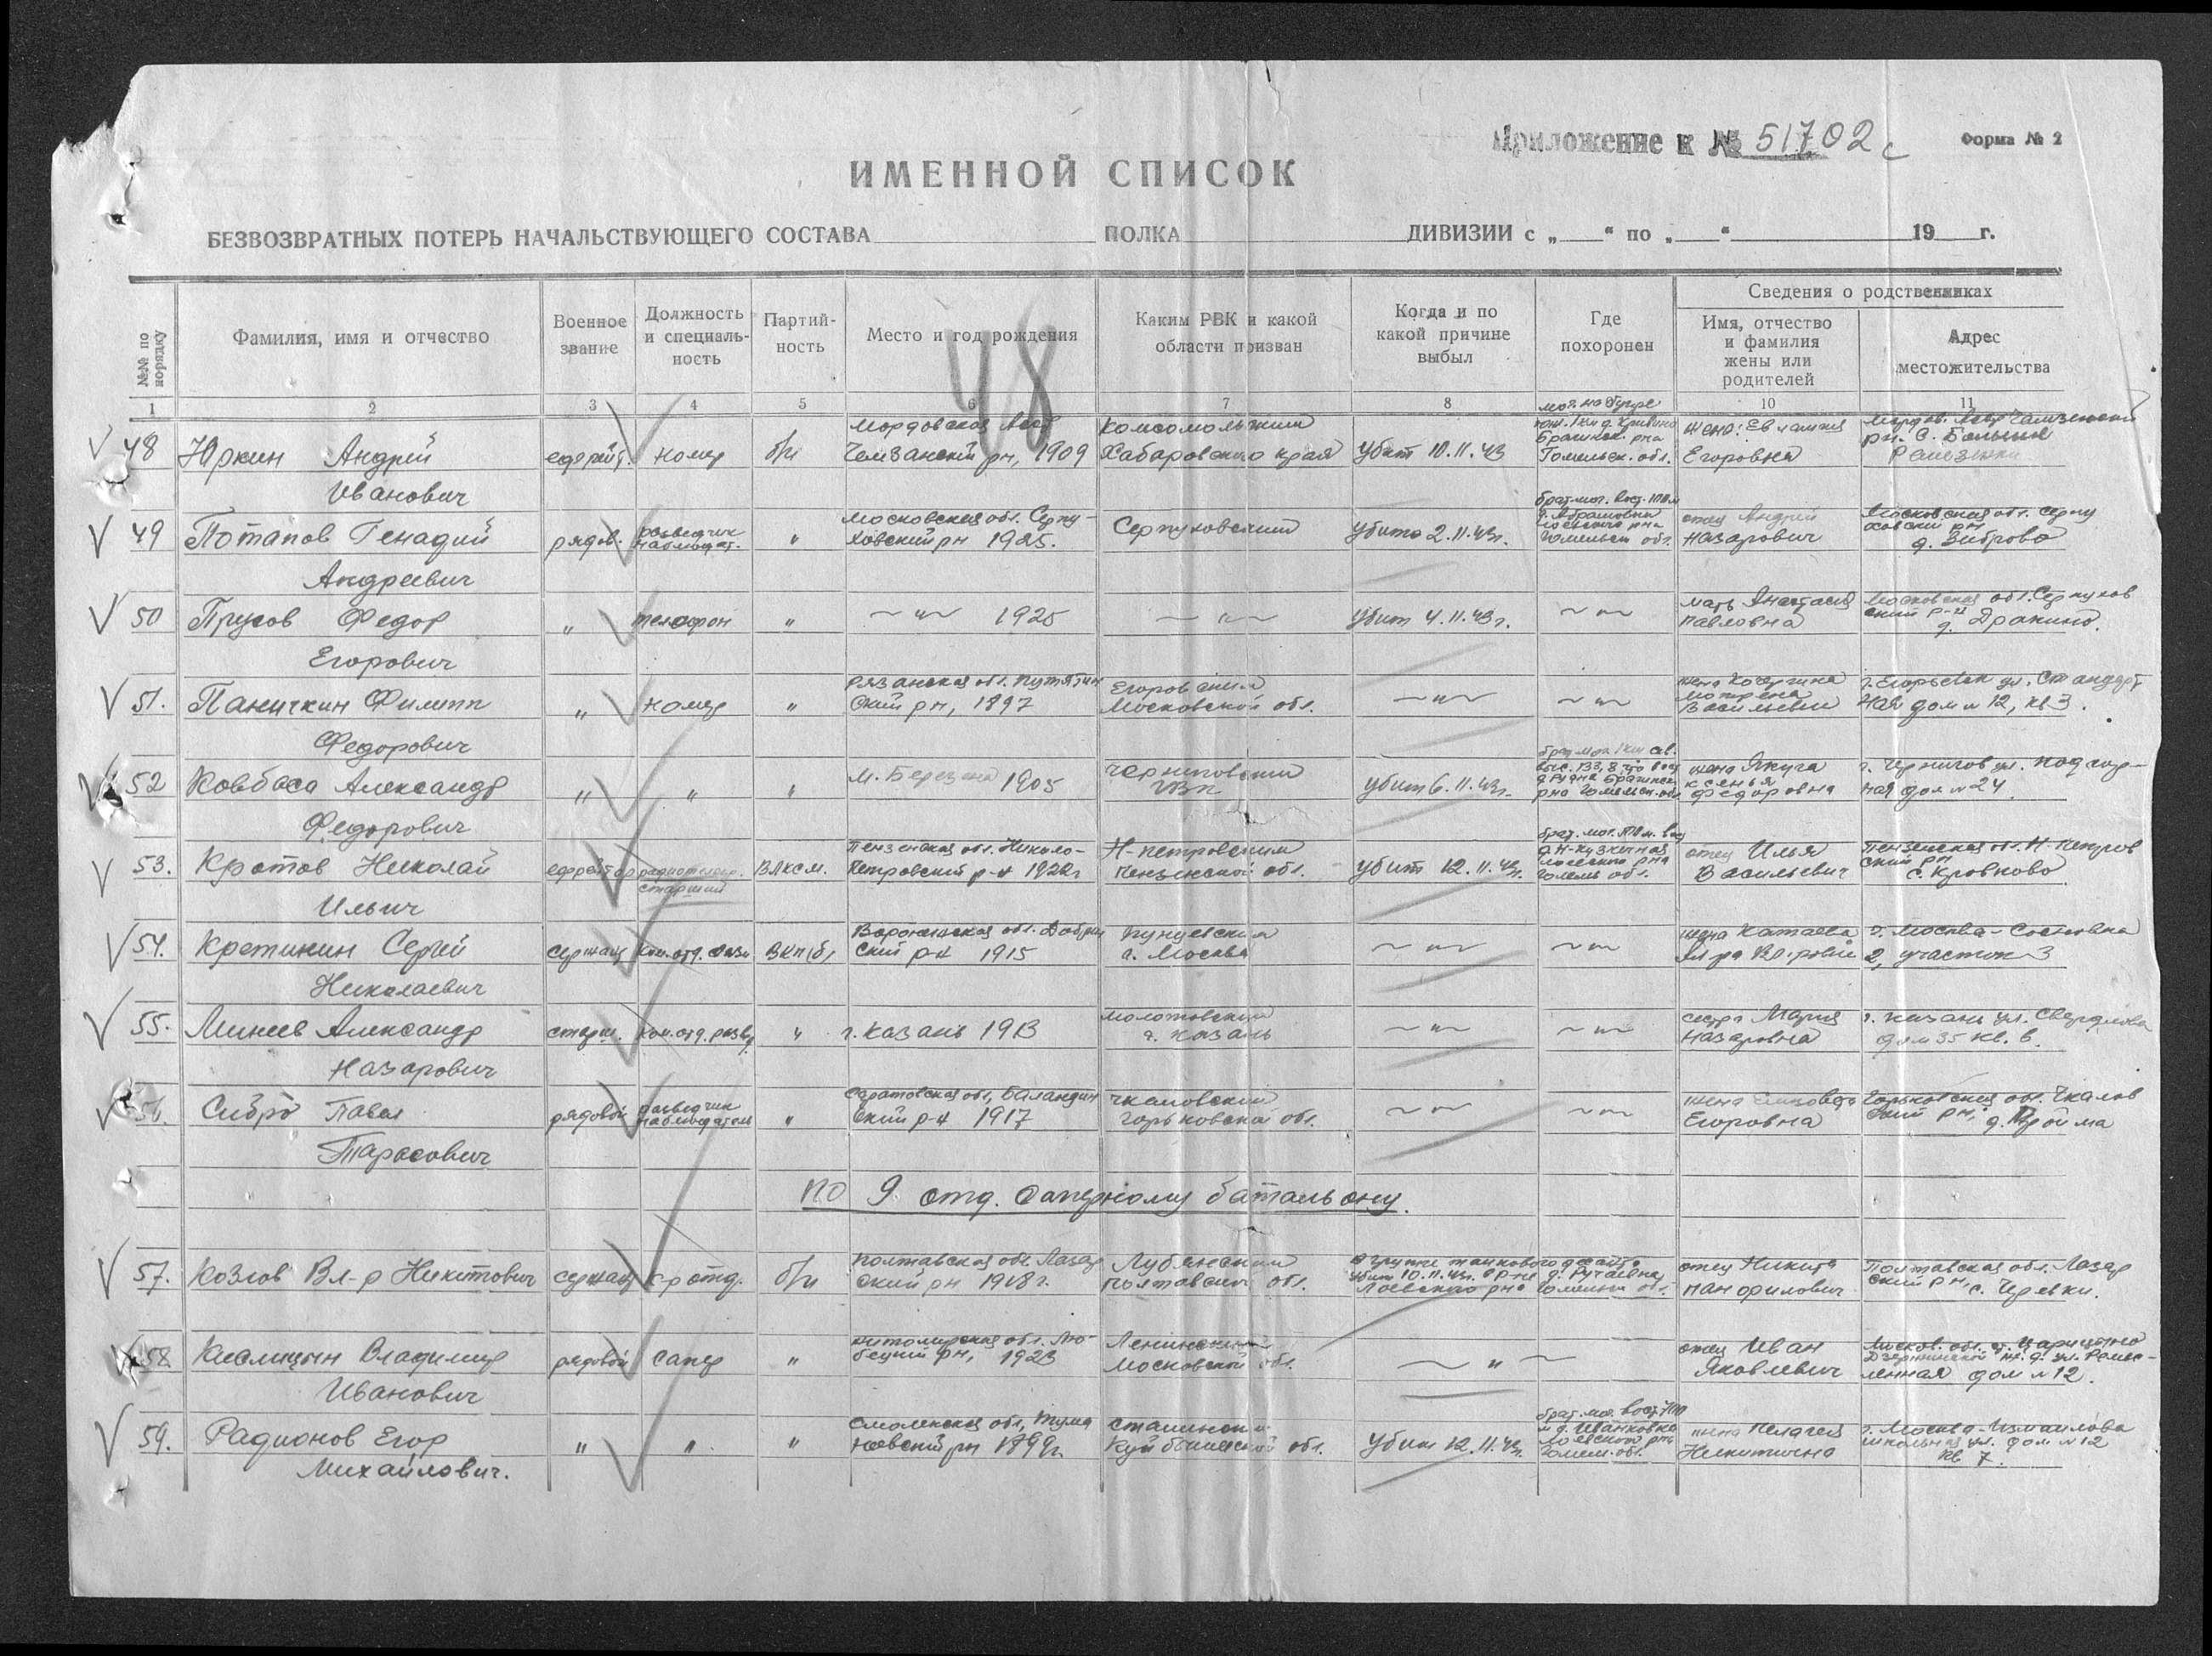 Приложение к № 51702с
Форма № 2
ИМЕННОЙ СПИСОК
БЕЗВОЗВРАТНЫХ ПОТЕРЬ НАЧАЛЬСТВУЮЩЕГО СОСТАВА ПОЛКА ДИВИЗИИ с „ “ по „ “ 19 г.
№№ по порядку
Фамилия, имя и отчество
Военное звание
Должность и специаль-ность
Партий-ность
Место и год рождения
Каким РВК и какой области призван
Когда и по какой причине выбыл
Где похоронен
Сведения о родственниках
Имя, отчество и фамилия жены или родителей
Адрес местожительства
48
1 2 3 4 5 6 7 8 10 11
48 Юркин Андрей Иванович
ефрейт. номер б/п
Мордовская Асср Чемзанский рн, 1909
Комсомольским Хабаровского края
Убит 10.11.43
Брагинск. рна Гомельск. обл.
жена: Евлампия Егоровна
рн. С. Большие
49 Потапов Генадий Андреевич
рядов. разведчик наблюдат. "
Московская обл. Серпу-ховский рн 1925.
Серпуховский
Убит 2.11.43г.
брат. мог. вост. 100 м
Гомельск обл.
отец Андрей Назарович
Московская обл. Серпуховский рн д. Зиброво
50 Прусов Федор Егорович
" телефон "
—"— 1925
—"—
Убит 4.11.43г.
—"—
мать Анастасия Павловна
Московская обл. Серпуховский р-н д. Дракино.
51. Паничкин Филипп Федорович
" номер "
Рязанская обл. Путятинский рн, 1897
Егоровским Московской обл.
—"—
—"—
жена Кочергина Мотрена Васильевн
г. Егорьевск ул. Стандартная дом № 12, кв 3.
52 Ковбаса Александр Федорович
" " "
м. Березна 1905
Черниговским ГВК
убит 6.11.43г.
рна Гомельск. обл
жена Якуга Ксенья Федоровна
г. Чернигов ул. Подгор-ная дом № 24
53. Кротов Николай Ильич
ефрейтор старший ВЛКСМ.
Пензенская обл. Николо-Петровский р-н 1922г
Н петровским Пензенской обл.
Убит 12.11.43г.
отец Илья Васильевич
Пензенская обл. Н-Петровский рн
54. Кретинин Сергей Николаевич
сержант ком. отд. связи ВКП(б)
Воронежская обл. Добринский р-н 1915
Кунцевским г. Москва
—"—
—"—
жена Катаева
г. Москва-Сосновка 2, участок 3
55. Минеев Александр Назарович
ком. отд. развед "
г. Казань 1913
Молотовский г. Казань
—"—
—"—
сестра Мария Назаровна
г. Казань ул. Свердлова дом 35 кв. 6.
56. Сибро Павел Тарасович
рядовой разведчик наблюдатель "
Саратовская обл, Баландинский р-н 1917
Чкаловский Горьковской обл.
—"—
—"—
жена Егоровна
Горьковская обл. Чкаловский рн,
по 9 отд. Саперному батальону.
57. Козлов Вл-р Никитович
сержант к-р отд. б/п
Полтавская обл. Лазарский рн 1918г.
Лубенский Полтавск. обл.
В группе танкового десанта убит 10.11.43г. в р-не д. Ручаевка Лоевского рна Гомельск обл.
отец Никита Панфилович
Полтавская обл. Лазарский рн, с. Черевки.
58 Кислицын Владимир Иванович
рядовой сапер "
Житомирская обл. 1923
Ленинский Московской обл.
—"—
отец Иван Яковлевич
Москов. обл. ст. Царицыно дом № 12.
59. Радионов Егор Михайлович.
" " "
Смоленская обл, Тумановский рн 1899г.
Сталинским Куйбышевской обл.
Убит 12.11.43г
д. Ивановка Лоевского рна Гомел. обл.
жена Пелагея Никитична
г. Москва-Измайлова школьная ул. дом № 12 кв 7.